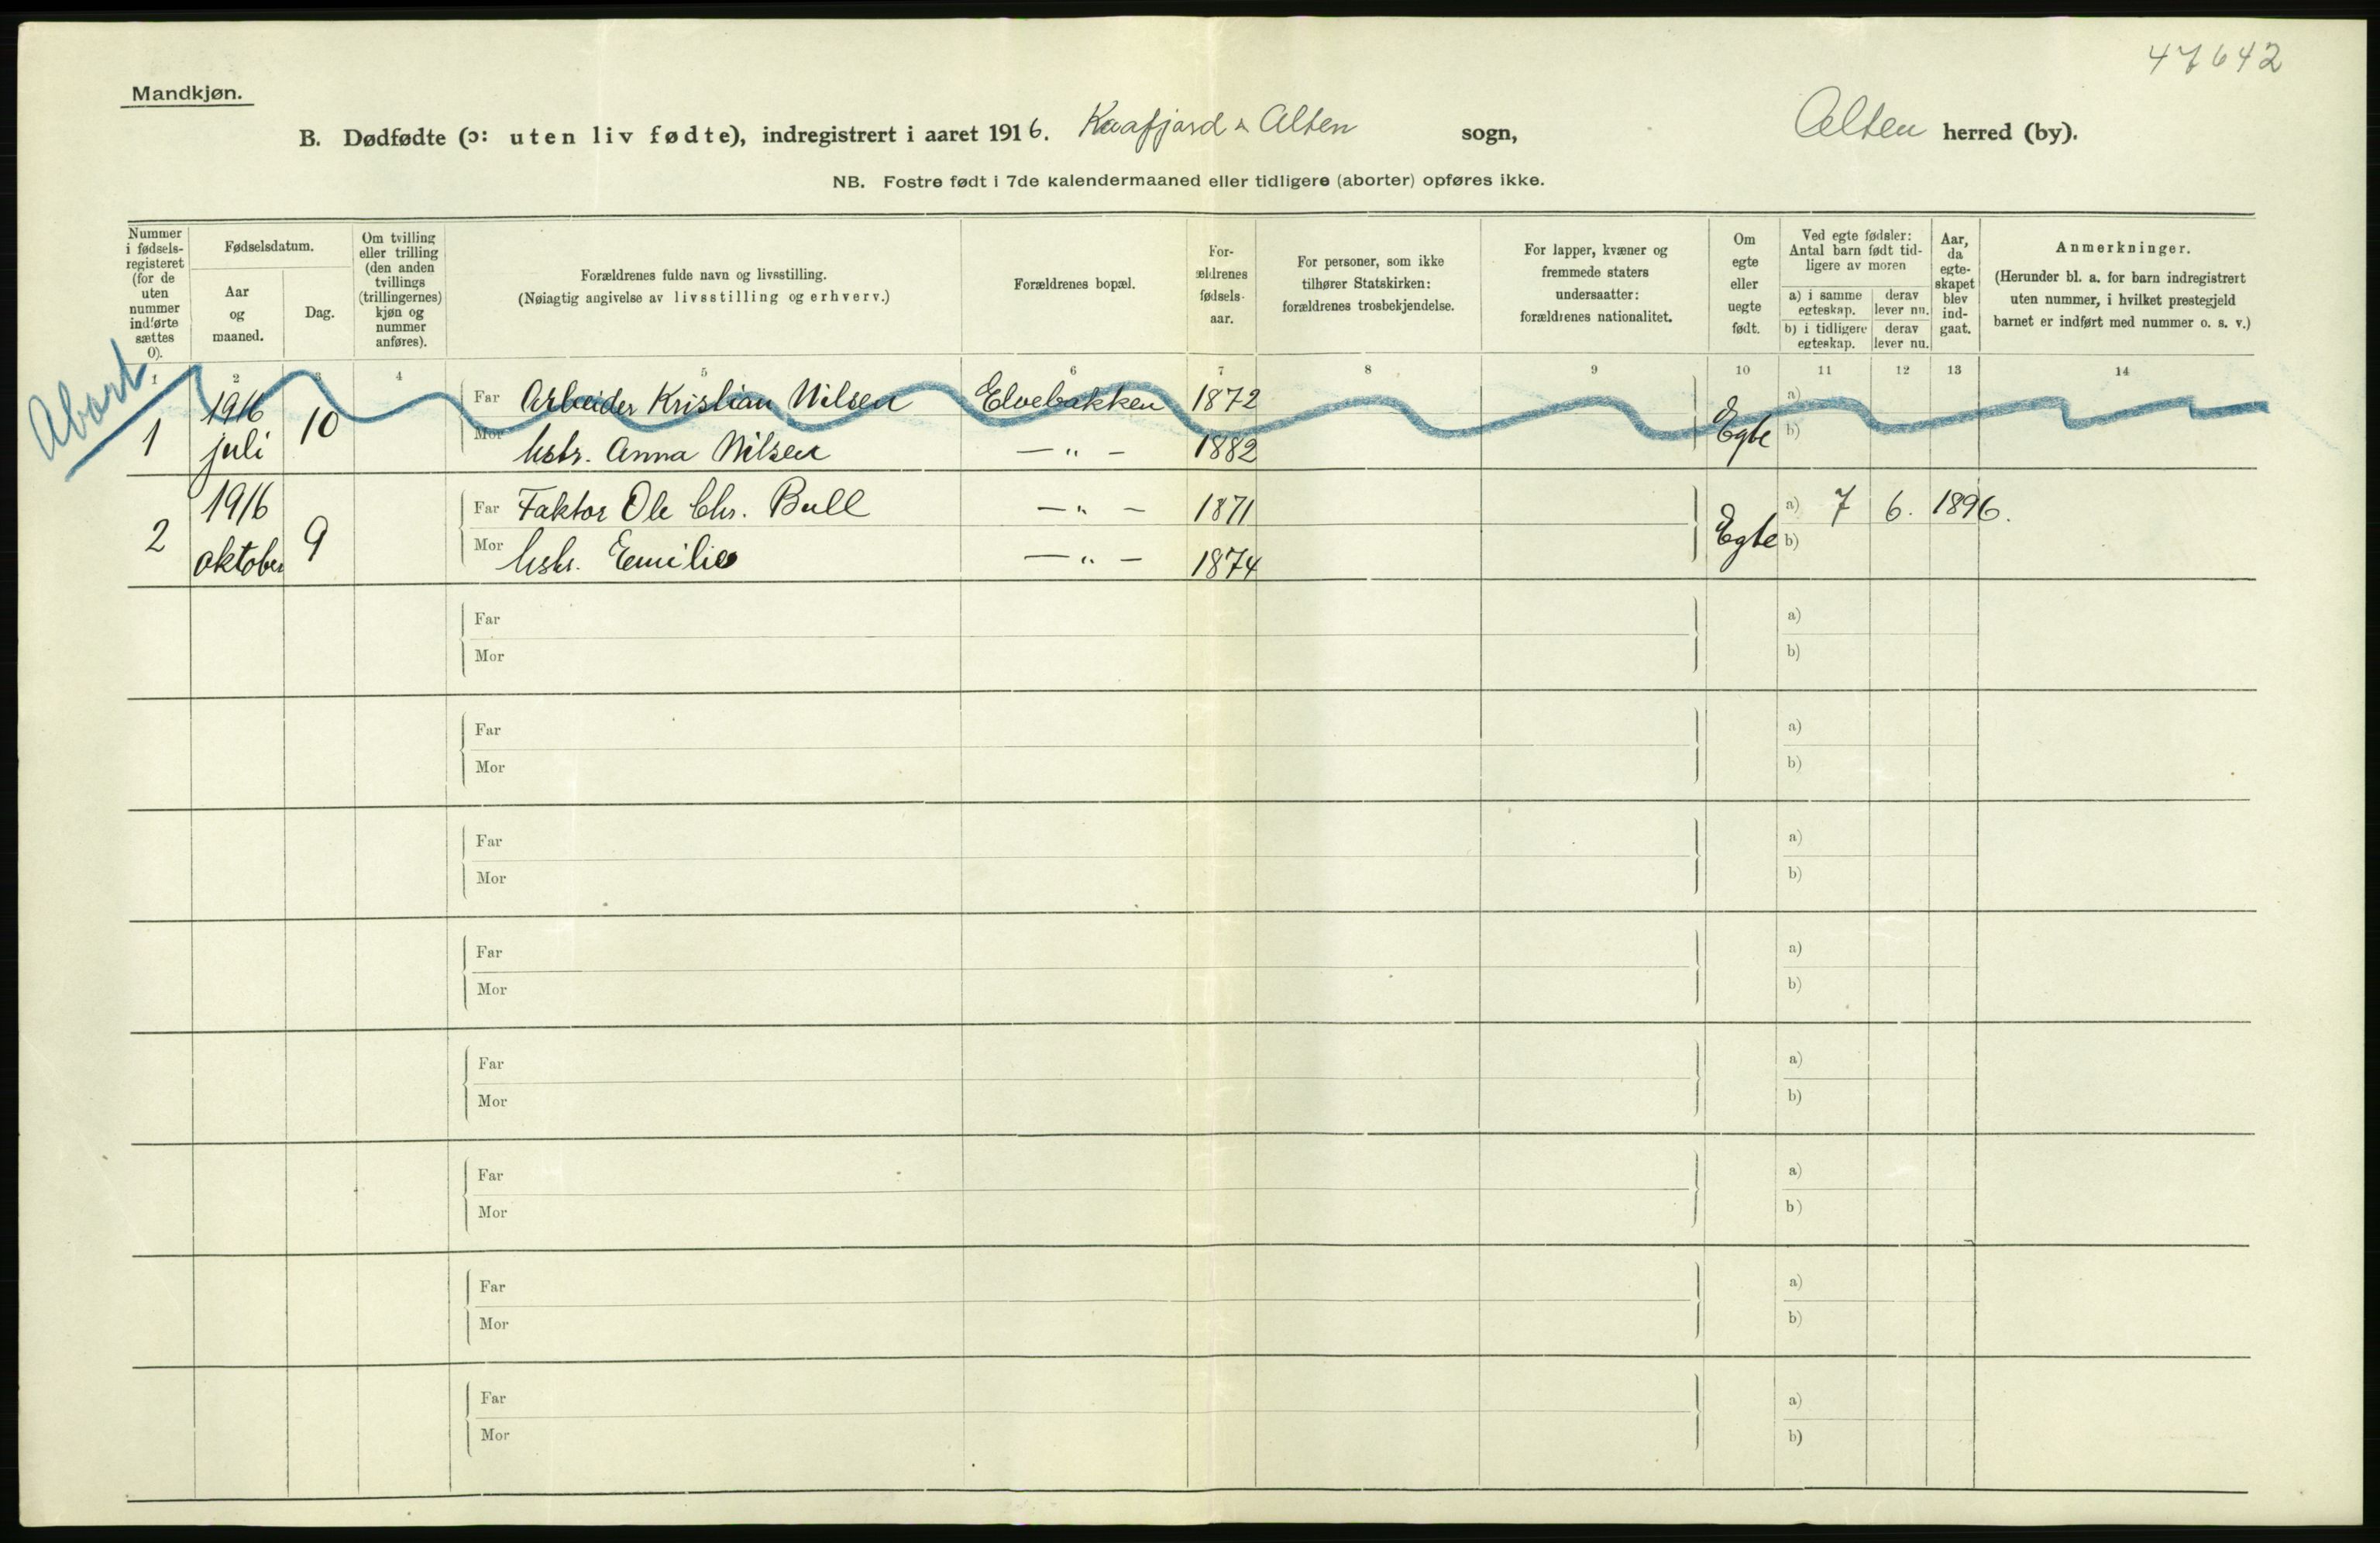 47642
Mandkjøn.
B. Dødfødte (ɔ: uten liv fødte), indregistrert i aaret 1916. Kaafjord & Alten sogn, Alten herred (by).
NB. Fostre født i 7de kalendermaaned eller tidligere (aborter) opføres ikke.
Nummer
i fødsels-
registeret
(for de
uten
nummer
indførte
sættes
0).
Fødselsdatum.
Aar
og
maaned.
Dag.
Om tvilling
eller trilling
(den anden
tvillings
(trillingernes)
kjøn og
nummer
anføres).
Forældrenes fulde navn og livsstilling.
(Nøiagtig angivelse av livsstilling og erhverv.)
Forældrenes bopæl.
For-
ældrenes
fødsels-
aar.
For personer, som ikke
tilhører Statskirken:
forældrenes trosbekjendelse.
For lapper, kvæner og
fremmede staters
undersaatter:
forældrenes nationalitet.
Om
egte
eller
uegte
født.
Ved egte fødsler:
Antal barn født tid-
ligere av moren
a) i samme
egteskap.
derav
lever nu.
b) i tidligere
egteskap.
derav
lever nu.
Aar,
da
egte-
skapet
blev
ind-
gaat.
Anmerkninger.
(Herunder bl. a. for barn indregistrert
uten nummer, i hvilket prestegjeld
barnet er indført med nummer o. s. v.)
1 2 3 4 5 6 7 8 9 10 11 12 13 14
Abort
1 1916 juli 10
Far Arbeider Kristian Nilsen Elvebakken 1872 Egte a)
Mor Hstr. Anna Nilsen — " — 1882 b)
2 1916 oktober 9
Far Faktor Ole Chr. Bull — " — 1871 Egte a) 7 6. 1896.
Mor Hstr. Emilie — " — 1874 b)
Far a)
Mor b)
Far a)
Mor b)
Far a)
Mor b)
Far a)
Mor b)
Far a)
Mor b)
Far a)
Mor b)
Far a)
Mor b)
Far a)
Mor b)